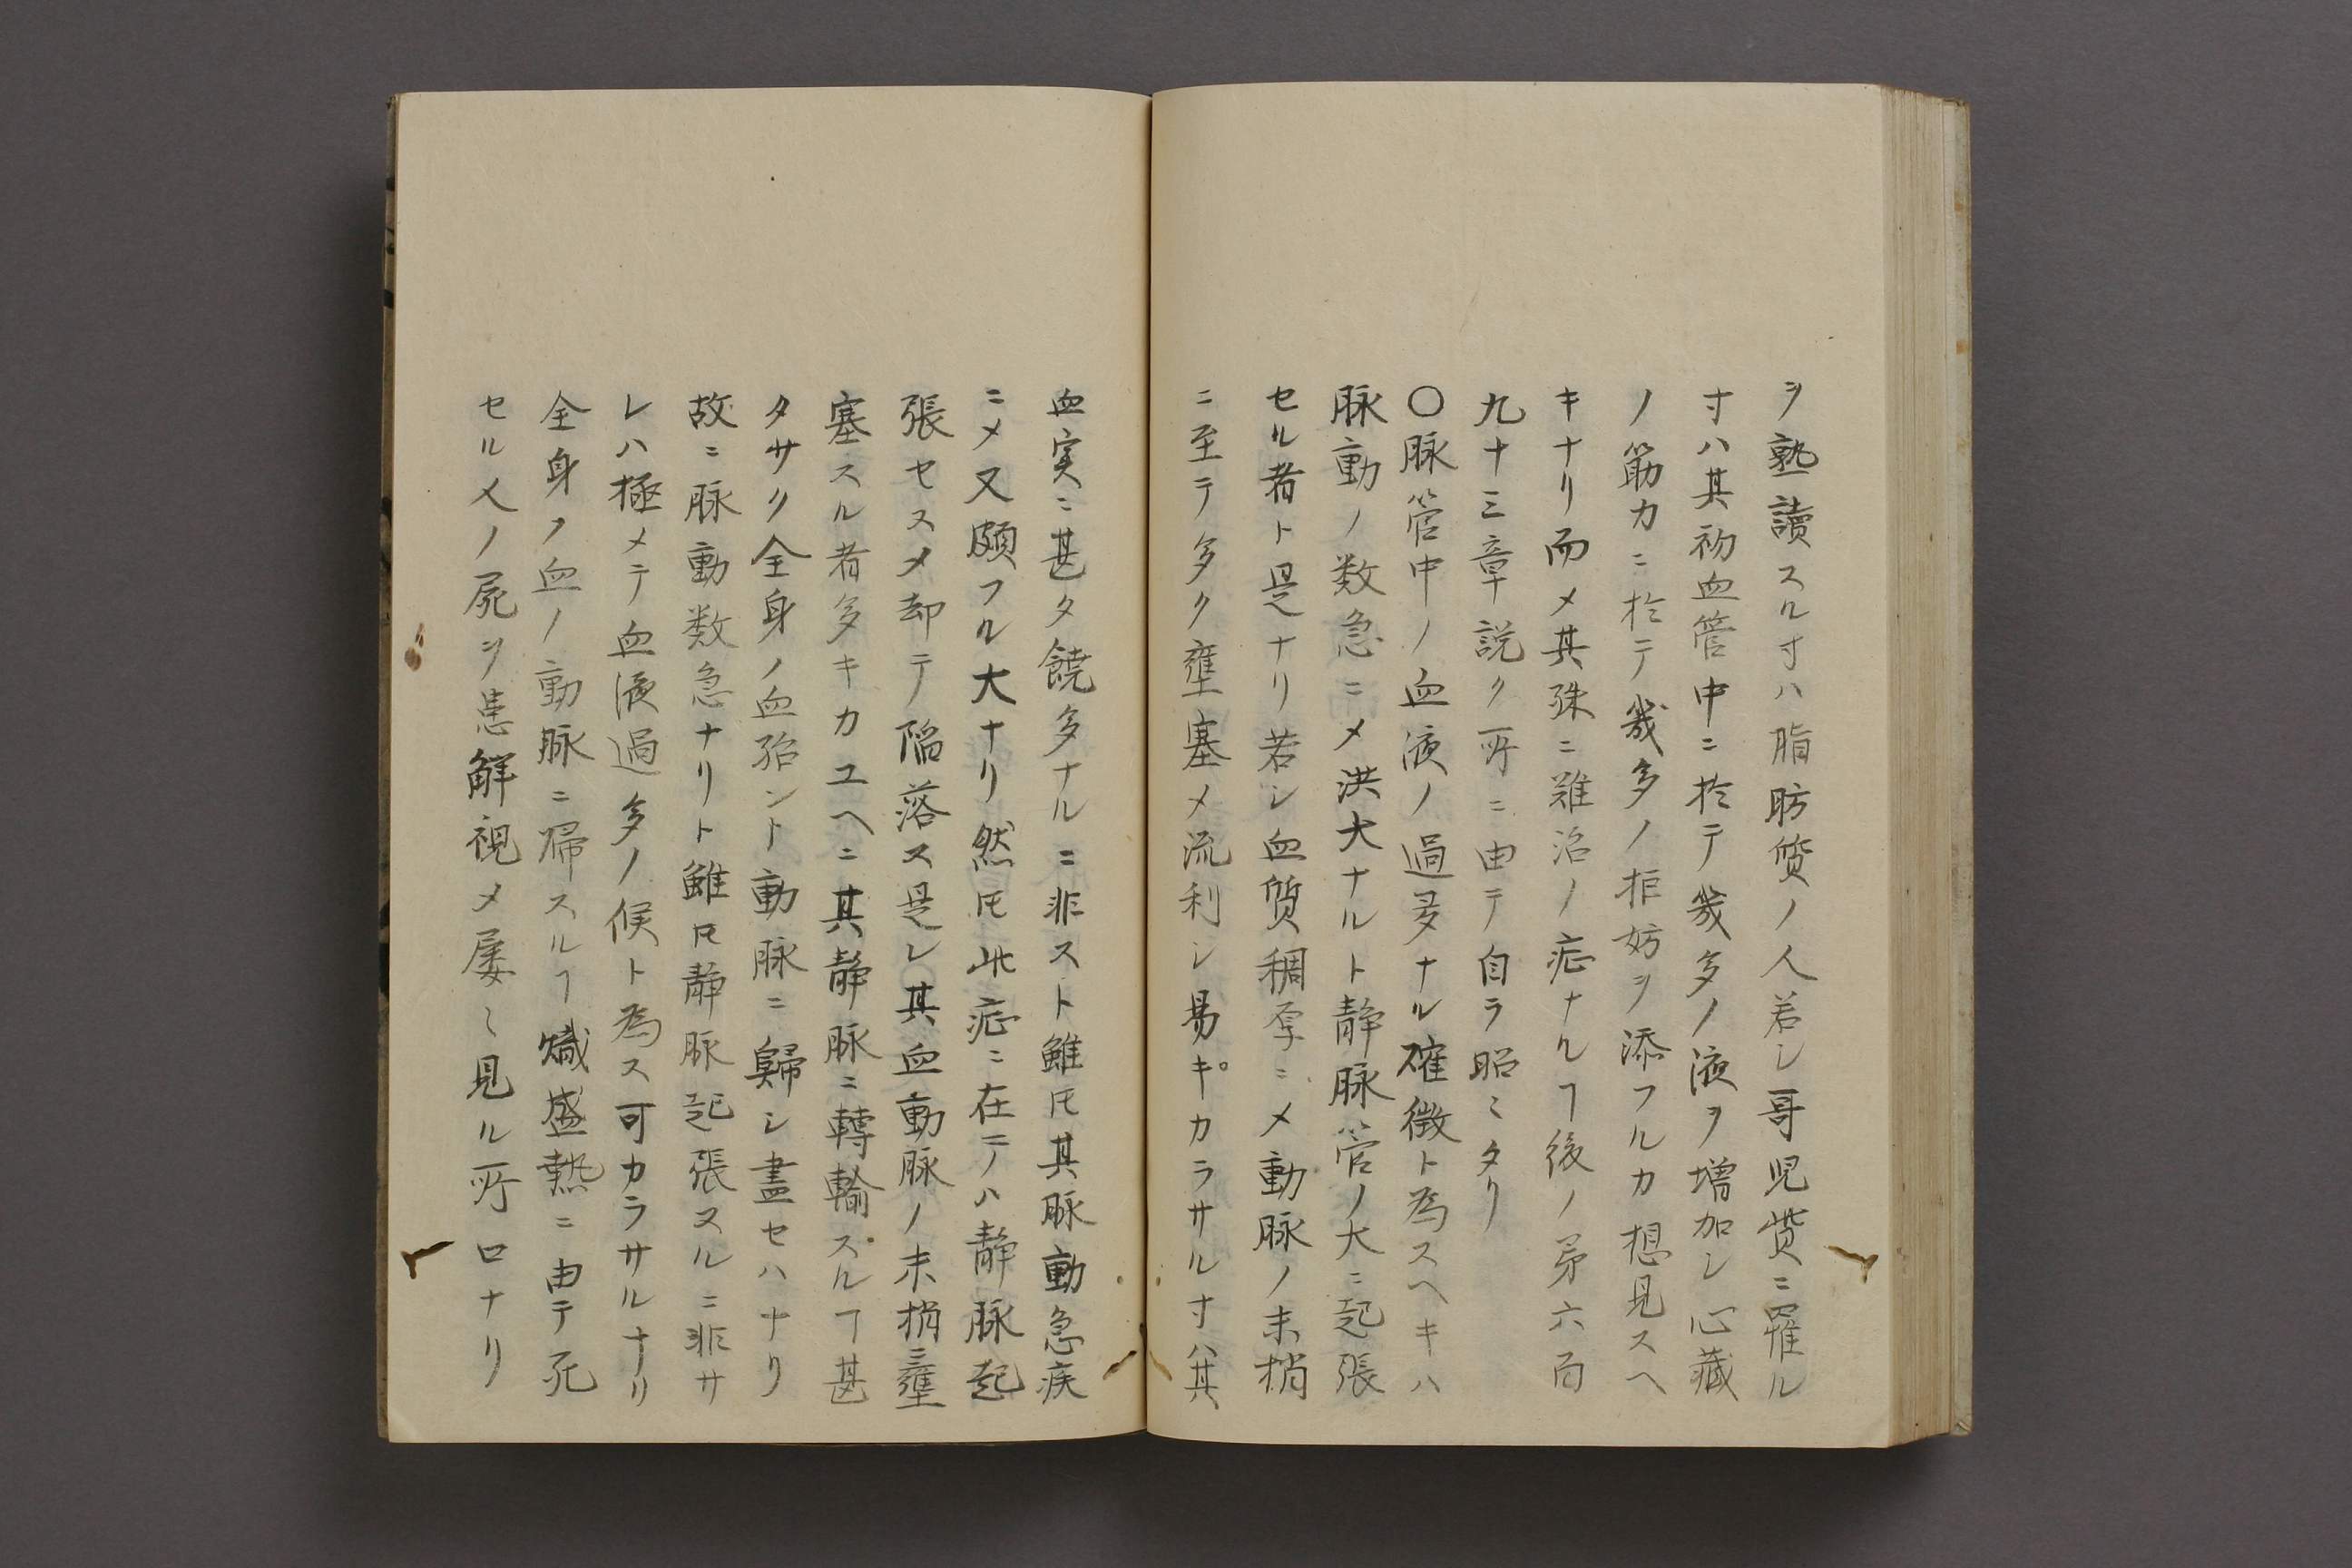 ヲ熟讀スル寸ハ脂肪質ノ人若シ哥児発ニ罹ル
寸ハ其初血管中ニ於テ幾多ノ液ヲ増加シ心藏
ノ筋力ニ於テ幾多ノ拒妨ヲ添フルカ想見スヘ
キナリ而〆其殊ニ難治ノ症ナルヿ後ノ第六百
九十三章説ク所ニ由テ自ラ昭ミタリ
〇脉管中ノ血液ノ過多ナル確徴ト為スヘキハ
脉動ノ数急ニ〆洪大ナルト静脉管ノ大ニ起張
セル者ト是ナリ若シ血質稠厚ニ〆動脉ノ末梢
ニ至テ多ク壅塞〆流利シ易キカラサル寸ハ其
血実ニ甚タ饒多ナルニ非スト雖𪜈其脉動急疾
ニ〆又頗フル大ナリ然𪜈此症ニ在テハ静脉起
張セス〆却テ陥落ス是レ其血動脉ノ末梢ニ壅
塞スル者多キカユヘニ其静脉ニ轉輸スルヿ甚
タサク全身ノ血殆ント動脉ニ歸シ盡セハナリ
故ニ脉動数急ナリト雖𪜈静脉起張スルニ非サ
レハ極メテ血液過多ノ候ト為ス可カラサルナリ
全身ノ血ノ動脉ニ帰スルヿ熾盛熱ニ由テ死
セル人ノ屍ヲ解視〆屡〻見ル所ロナリ